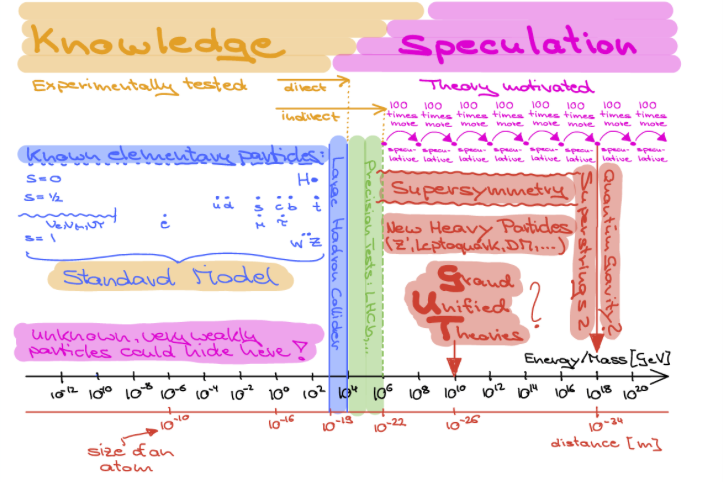 Knowledge
Speculation
Experimentally tested
direct
indirect
Theory motivated
100 times more
100 times more
100 times more
100 times more
100 times more
100 times more
100 times more
100 times more
specu-lative
specu-lative
specu-lative
specu-lative
specu-lative
specu-lative
specu-lative
specu-lative
Known elementary particles:
S=0
H
S=½
u d s c b t
e μ τ
S=1
W Z
Standard Model
Large Hadron Collider
Precision Tests: LHCb,...
Supersymmetry
New Heavy Particles
(Z', Leptoquark, DM,...)
Grand
Unified
Theories
?
Superstrings?
Quantum Gravity?
unknown, very weakly
particles could hide here!
Energy/Mass [GeV]
10⁻¹² 10⁻¹⁰ 10⁻⁸ 10⁻⁶ 10⁻⁴ 10⁻² 10⁰ 10² 10⁴ 10⁶ 10⁸ 10¹⁰ 10¹² 10¹⁴ 10¹⁶ 10¹⁸ 10²⁰
10⁻¹⁰ 10⁻¹⁶ 10⁻¹⁹ 10⁻²² 10⁻²⁶ 10⁻³⁴
distance [m]
size of an
atom